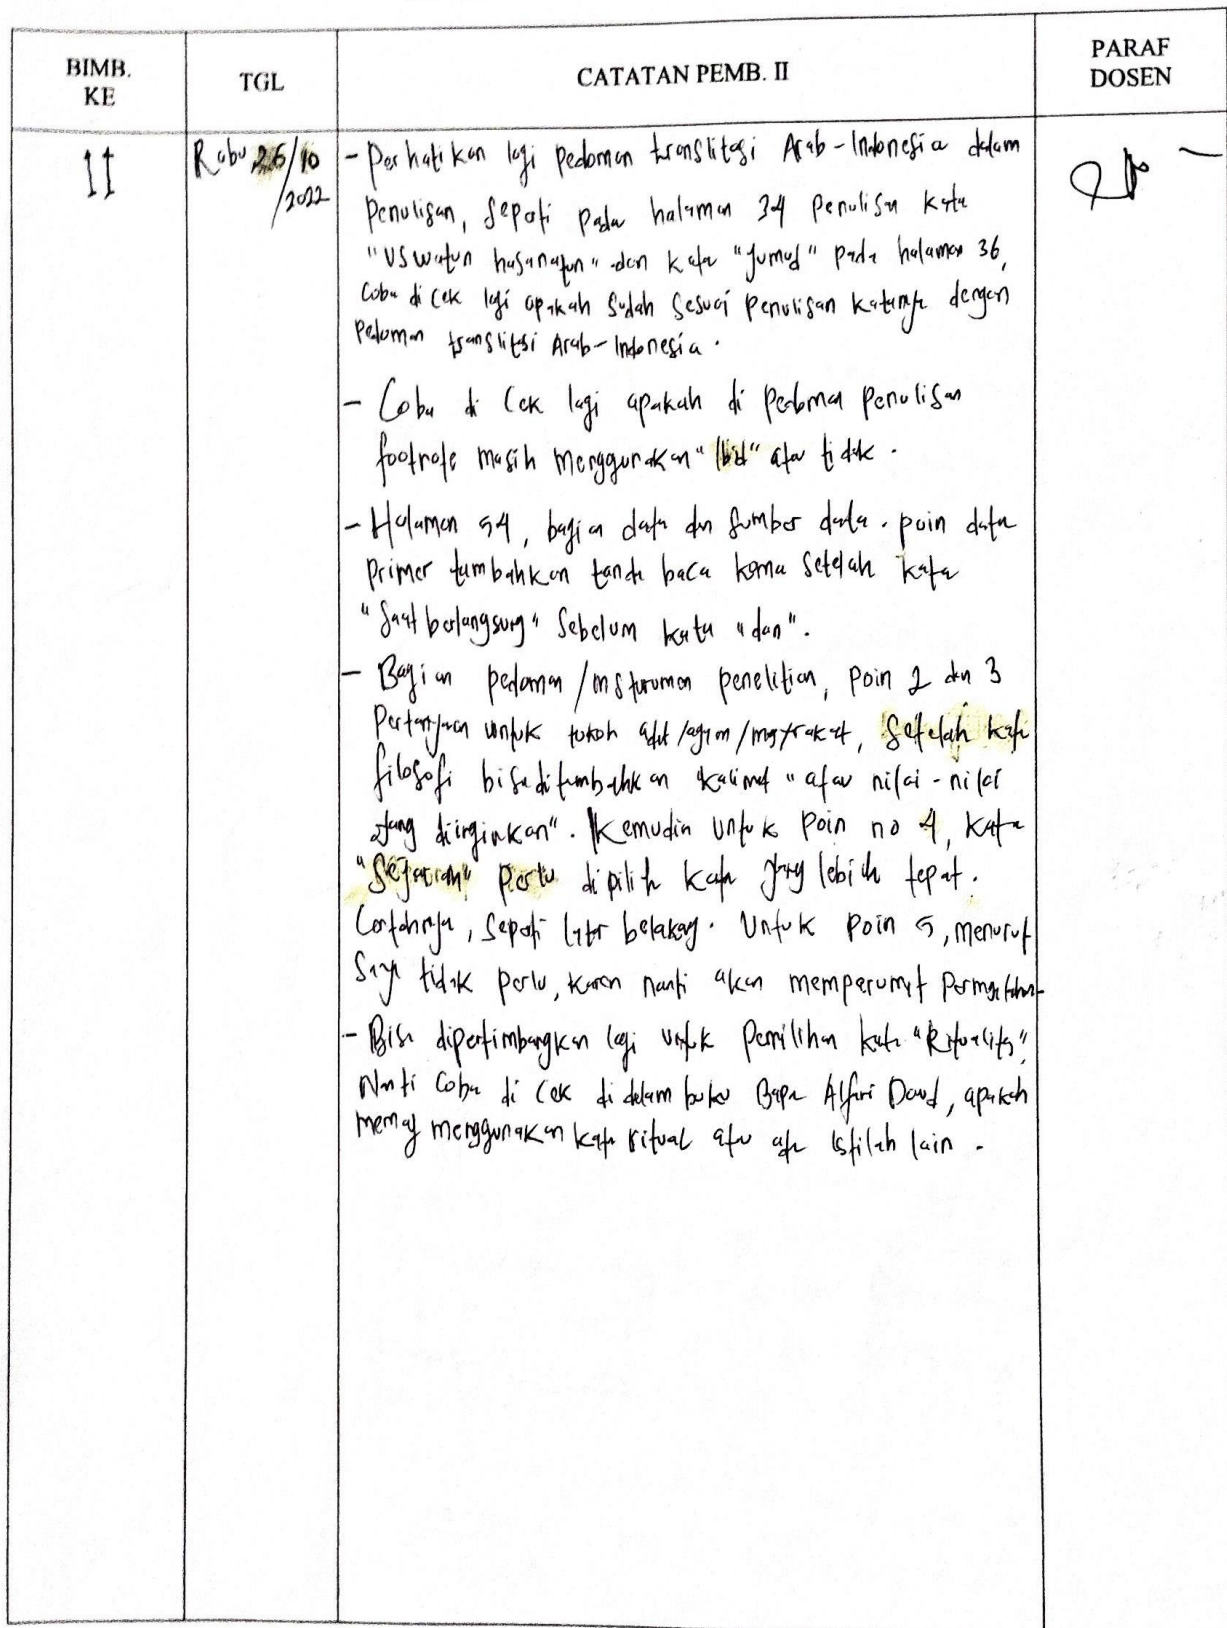 BIMB. KE
TGL
CATATAN PEMB. II
PARAF DOSEN
II
Rabu 26/10/2022
- Perhatikan lagi pedoman translitasi Arab-Indonesia dalam
penulisan, seperti pada halaman 34 penulisan kata
"uswatun hasanatun" dan kata "jumud" pada halaman 36,
coba di cek lagi apakah sudah sesuai penulisan katanya dengan
pedoman translitsi Arab-Indonesia.
- Coba di cek lagi apakah di pedoman penulisan
footnote masih menggunakan "Ibid" atau tidak.
- Halaman 54, bagian data dan sumber data. poin data
primer tambahkan tanda baca koma setelah kata
"saat berlangsung" sebelum kata "dan".
- Bagian pedoman/instrumen penelitian, poin 2 dan 3
pertanyaan untuk tokoh adat/agama/masyarakat, setelah kata
filosofi bisa ditambahkan kalimat "atau nilai-nilai
yang diinginkan". Kemudian untuk poin no 4, kata
"Sejarah" perlu dipilih kata yang lebih tepat.
Contohnya, seperti latar belakang. Untuk poin 5, menurut
saya tidak perlu, karena nanti akan memperumit
- Bisa dipertimbangkan lagi untuk pemilihan kata "Ritualitas"
Nanti coba di cek di dalam buku Bapa Alfani Daud, apakah
memang menggunakan kata ritual atau ada istilah lain.